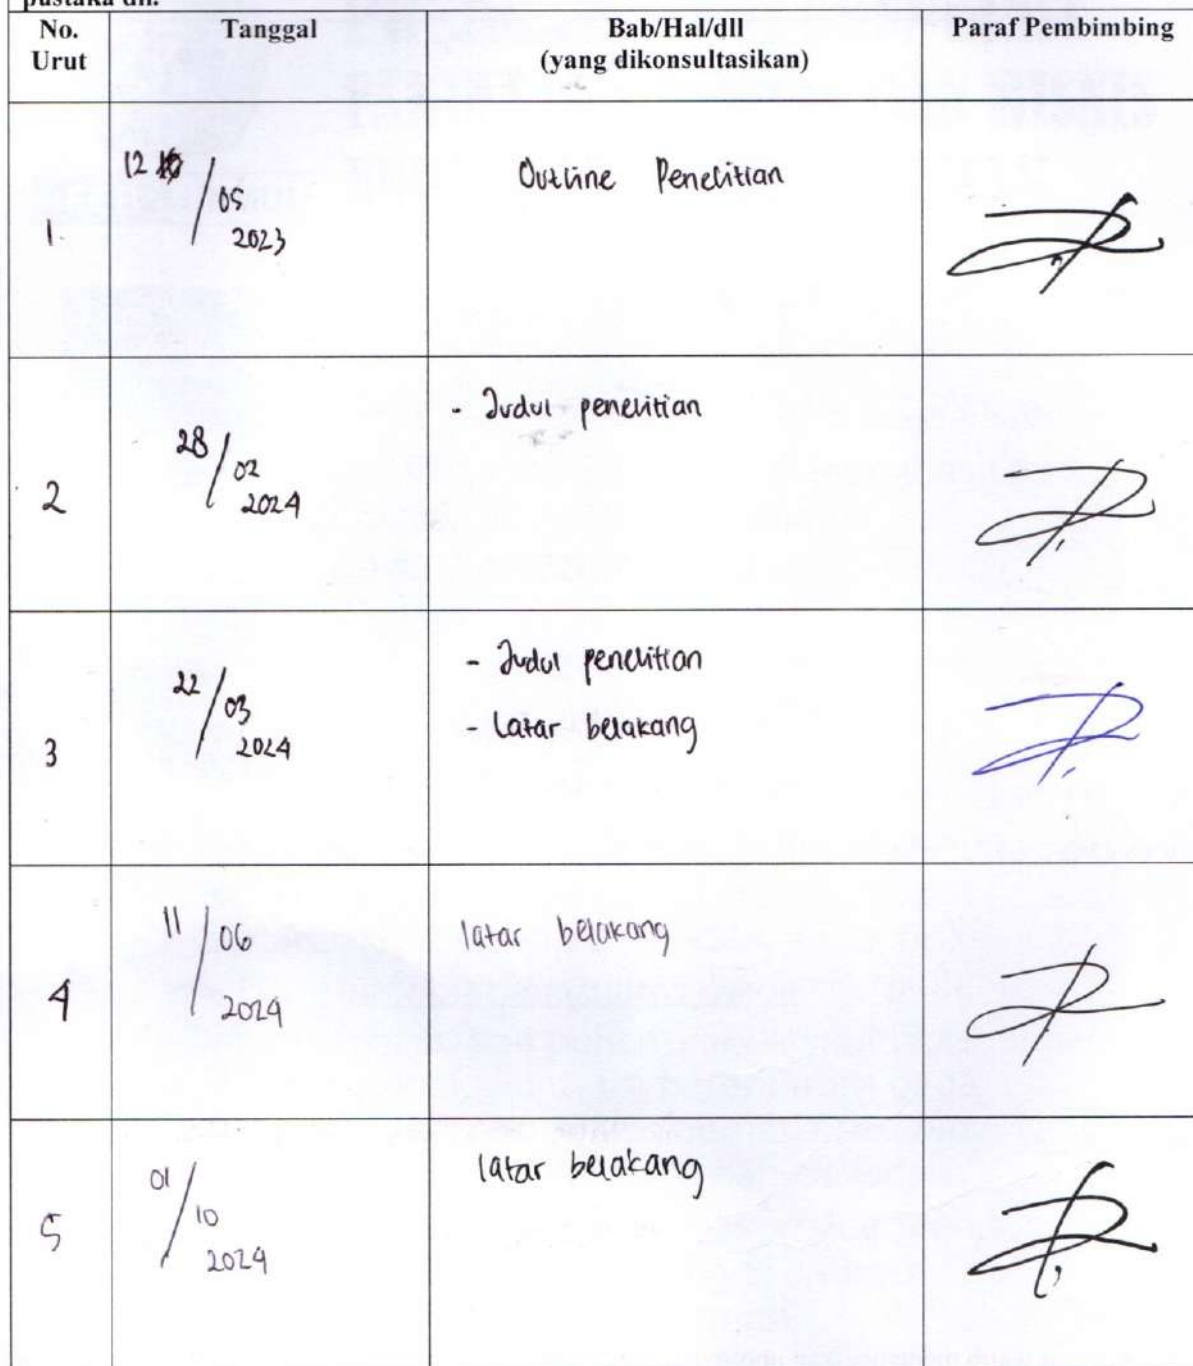 pustaka dll.
No. Urut Tanggal Bab/Hal/dll (yang dikonsultasikan) Paraf Pembimbing
1. 12 / 05 2023 Outline Penelitian
2 28 / 02 2024 - Judul penelitian
3 22 / 03 2024 - Judul penelitian
- Latar belakang
4 11 / 06 2024 latar belakang
5 01 / 10 2024 latar belakang